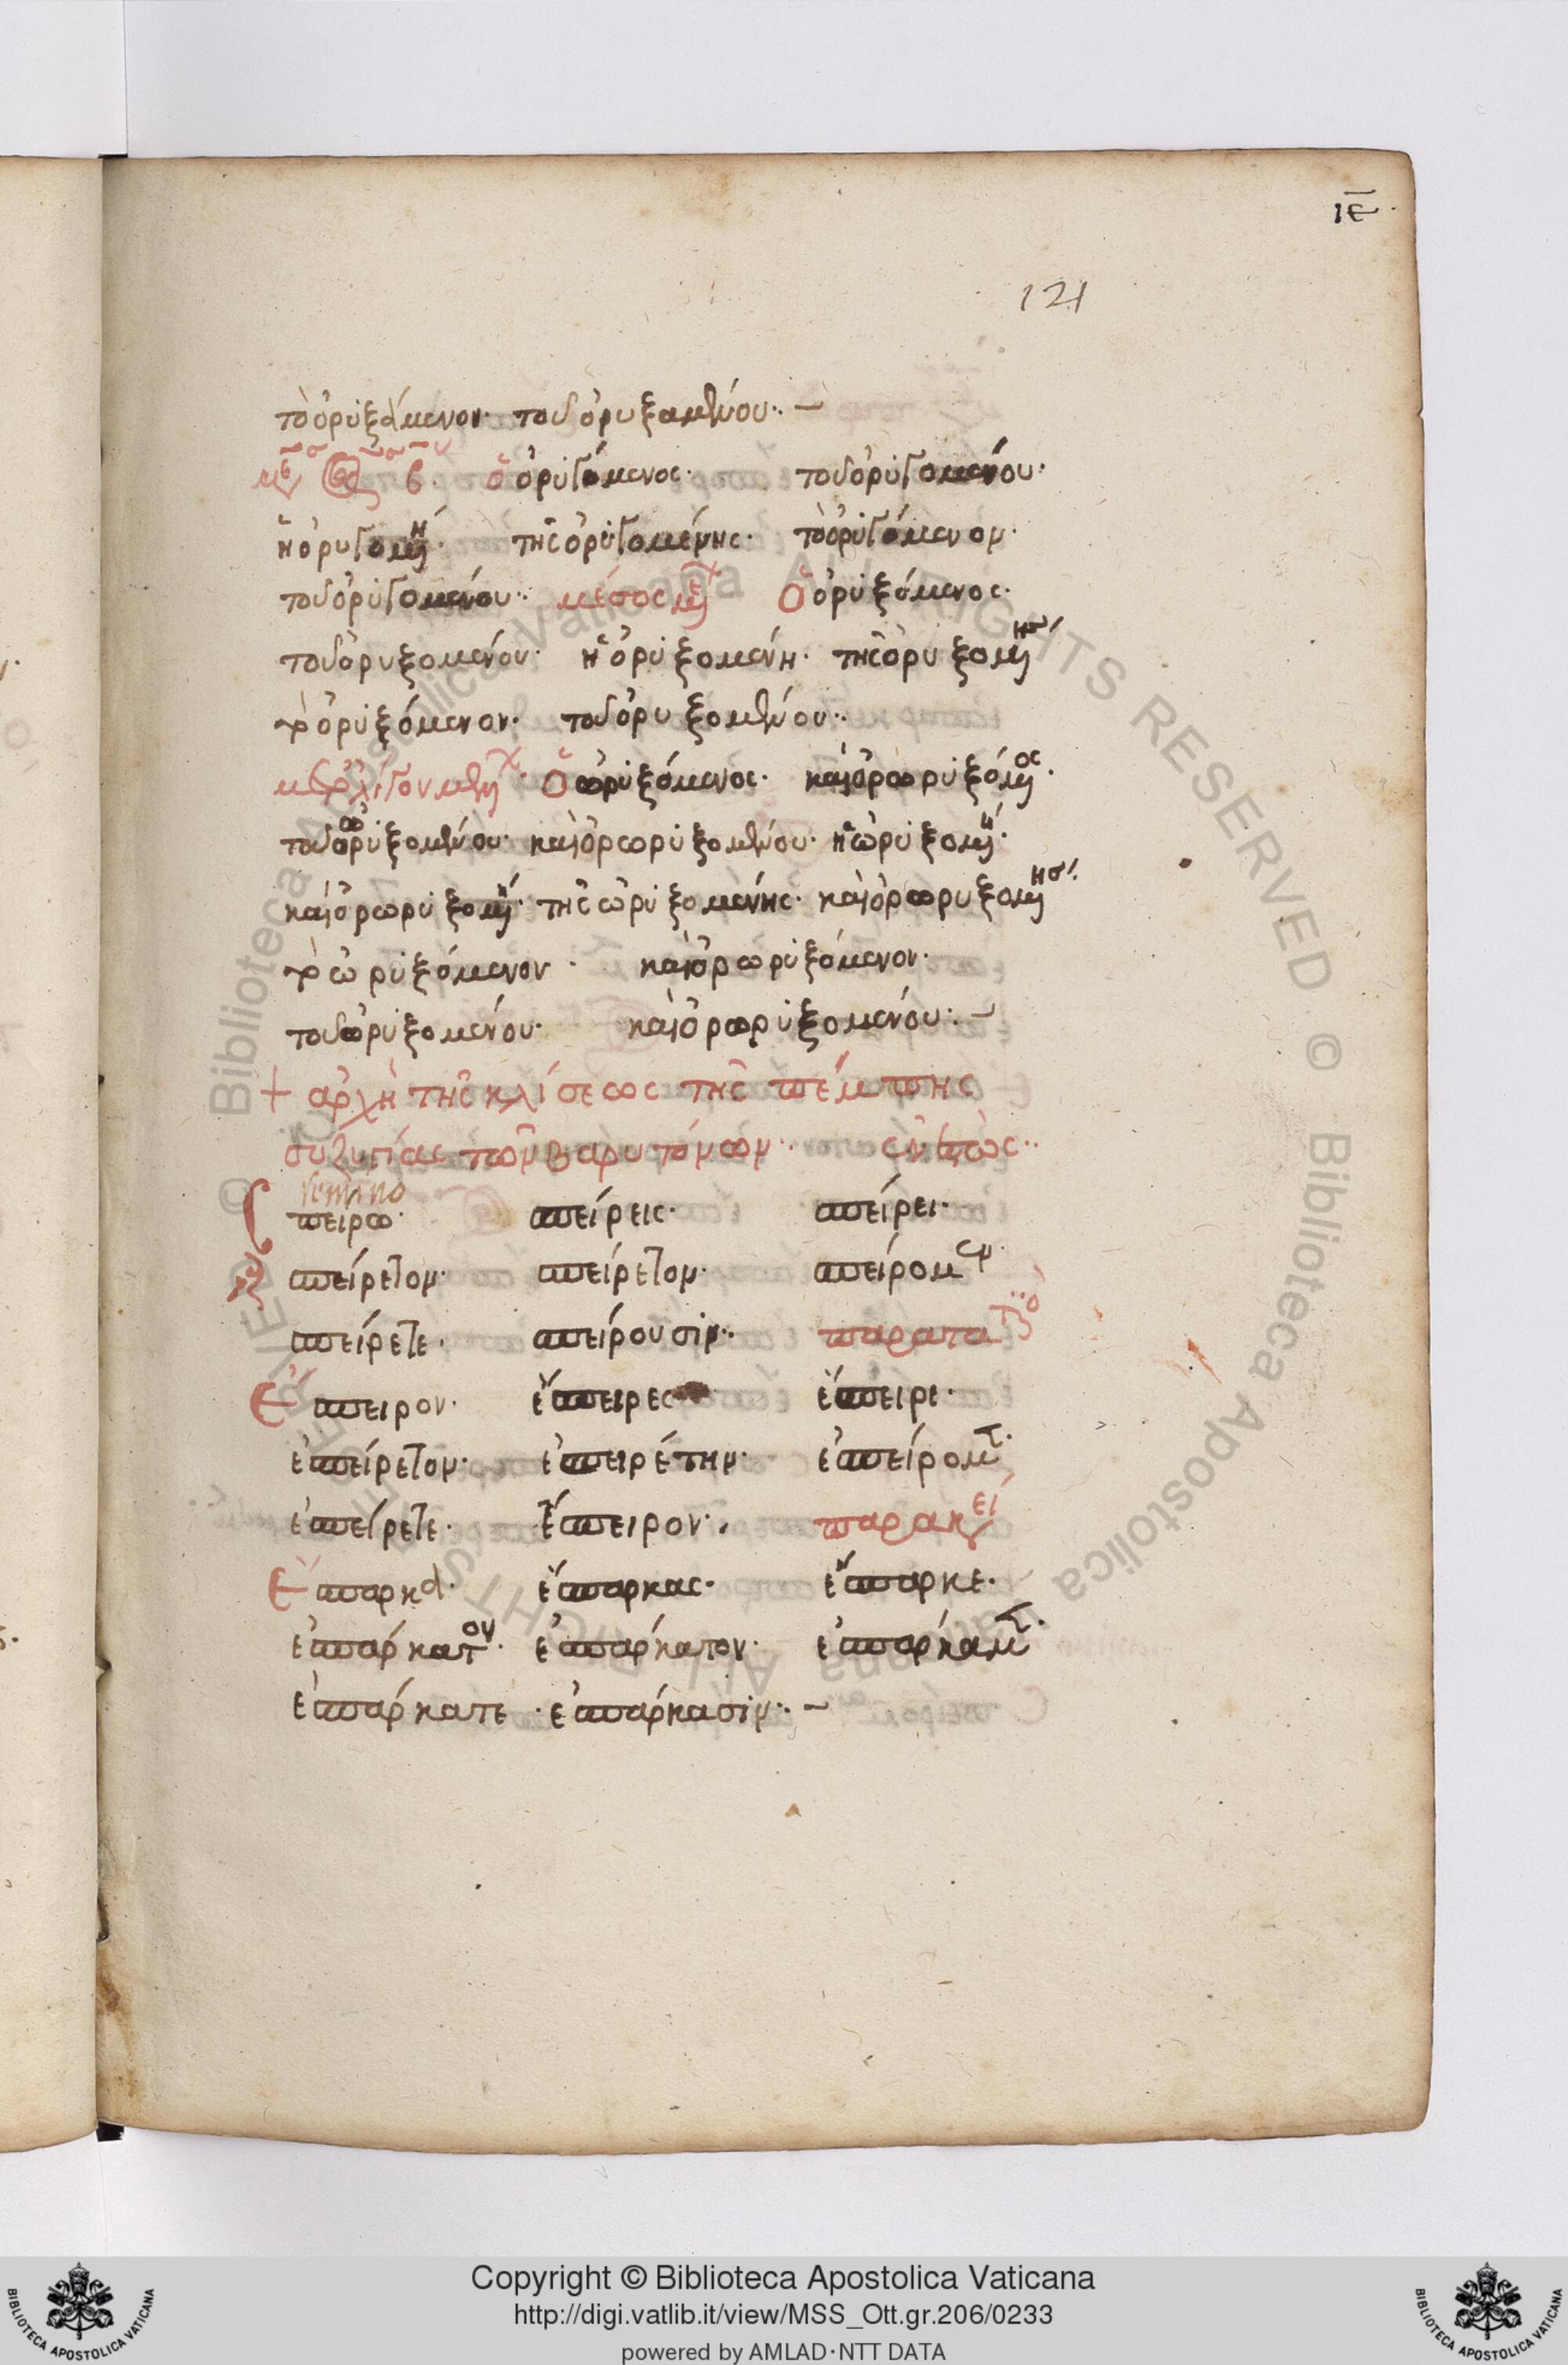 ιε
121
τὸ ὀρυξάμενον· τοῦ ὀρυξαμένου·–
β· ὁ ὀρυγόμενος· τοῦ ὀρυγομένου·
ἡ ὀρυγομένη· τῆς ὀρυγομένης· τὸ ὀρυγόμενον·
τοῦ ὀρυγομένου· μέσος μέλλ ὁ ὀρυξόμενος·
τοῦ ὀρυξομένου· ἡ ὀρυξομένη· τῆς ὀρυξομένης
τὸ ὀρυξόμενον· τοῦ ὀρυξομένου··
μετ ὀλίγον μέλλ· ὁ ὠρυξόμενος· καὶ ὀρωρυξόμενος·
τοῦ ὠρυξομένου· καὶ ὀρωρυξομένου· ἡ ὠρυξομένη·
καὶ ὀρωρυξομένη· τῆς ὠρυξομένης· καὶ ὀρωρυξομένης·
τὸ ὠρυξόμενον· καὶ ὀρωρυξόμενον·
τοῦ ὠρυξομένου· καὶ ὀρωρυξομένου·–
+ ἀρχὴ τῆς κλίσεως τῆς πέμπτης
συζυγίας τῶν βαρυτόνων·· ἐνεστώς··
σπείρω· σπείρεις· σπείρει·
σπείρετον· σπείρετον· σπείρομεν·
σπείρετε· σπείρουσιν·· παρατατικός
ἔσπειρον· ἔσπειρες ἔσπειρε·
ἐσπείρετον· ἐσπειρέτην· ἐσπείρομεν·
ἐσπείρετε· ἔσπειρον·· παρακεί
ἔσπαρκα· ἔσπαρκας· ἔσπαρκε·
ἐσπάρκατον· ἐσπάρκατον· ἐσπάρκαμεν·
ἐσπάρκατε· ἐσπάρκασιν··–
© Biblioteca Apostolica Vaticana ALL RIGHTS RESERVED
Copyright © Biblioteca Apostolica Vaticana
http://digi.vatlib.it/view/MSS_Ott.gr.206/0233
powered by AMLAD·NTT DATA
BIBLIOTECA APOSTOLICA VATICANA
BIBLIOTECA APOSTOLICA VATICANA